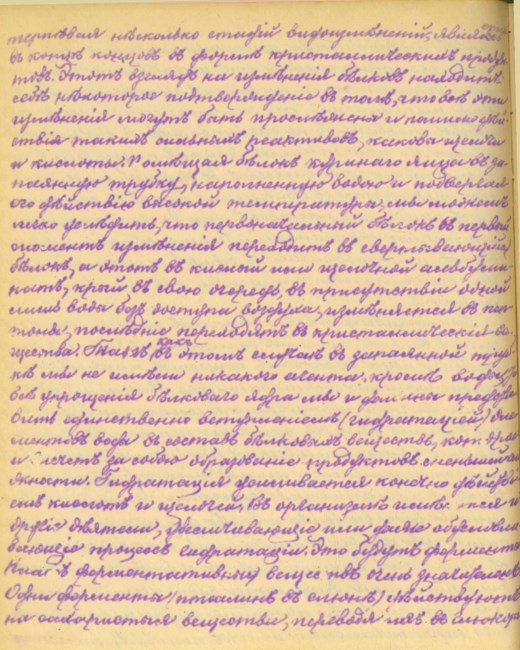 терпѣвая нѣсколько стадій видоизмѣненій, являются
въ концѣ концовъ въ формѣ кристаллическихъ продук-
товъ. Этотъ взглядъ на измѣненія бѣлковъ находитъ
себѣ нѣкоторое подтвержденіе въ томъ, что всѣ эти
измѣненія могутъ быть прослѣжены и помимо дѣй-
ствія такихъ сильныхъ реактивовъ, какова щелочи
и кислоты. Помѣщая бѣлокъ куринаго яйца въ за-
паянную трубку, наполненную водою и подвергая
его дѣйствію высокой температуры, мы можемъ
легко убѣдить, что первоначальный бѣлокъ въ первый
моментъ измѣненія переходитъ въ свертывающійся
бѣлокъ, а этотъ въ кислый или щелочной альбуми-
натъ, крый въ свою очередь, въ присутствіи одной
лишь воды безъ доступа воздуха, измѣняется въ пеп-
тоны, послѣдніе переходятъ въ кристаллическія ве-
щества. Такъ какъ въ этомъ случаѣ въ запаянной труб-
кѣ мы не имѣли никакого агента, кромѣ воды,
всѣ упрощенія бѣлковаго ядра мы и должны предста-
вить единственно вступленіемъ (гидратаціей) эле-
ментовъ воды въ составъ бѣлковыхъ веществъ,
и влечетъ за собою образованіе продуктовъ
Гидратація усиливается конечно дѣйстві-
емъ кислотъ и щелочей. Въ организмѣ
другіе дѣятели, увеличивающіе или даже обусловли-
вающіе процессъ гидратаціи. Это будутъ ферменты.
ферментативныхъ веществъ очень значительно.
Одни ферменты (птіалинъ въ слюнѣ) дѣйствуютъ
на сахаристыя вещества, переводя ихъ въ глюкозу